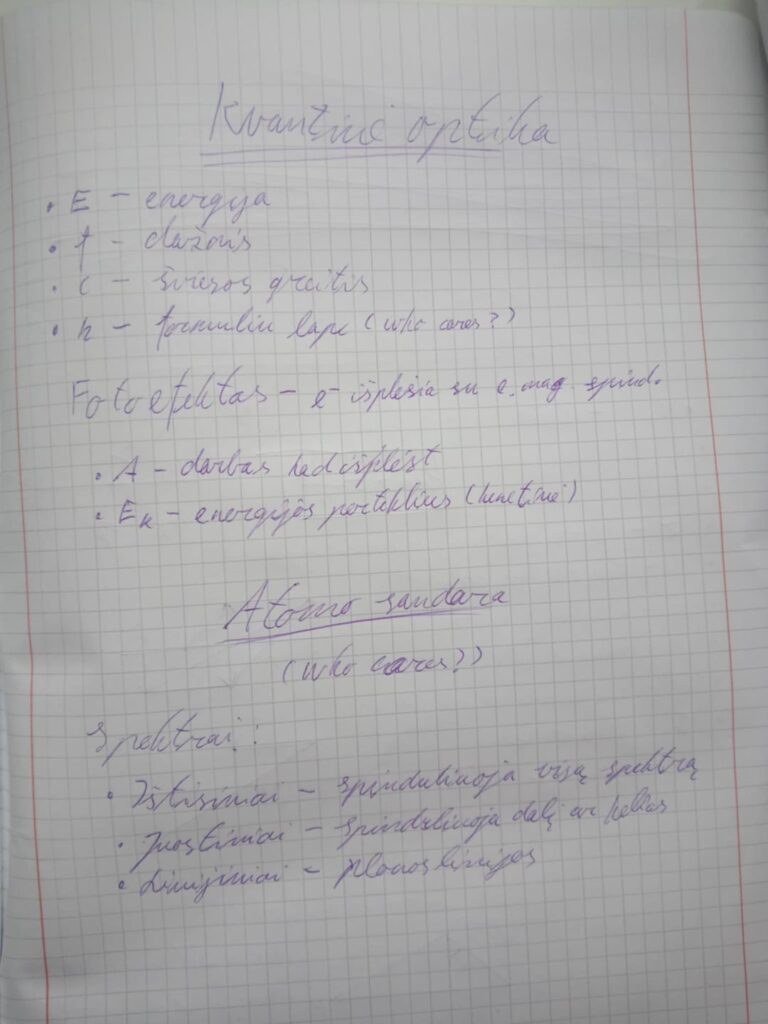 Kvantinė optika
• E - energija
• f - dažnis
• c - šviesos greitis
• h - formulių lape (who cares?)
Fotoefektas - e⁻ išplėšia su e.mag spind.
• A - darbas kad išplėšt
• Eₖ - energijos perteklius (kinetinė)
Atomo sandara
(who cares?)
Spektrai:
• Ištisiniai - spinduliuoja visą spektrą
• Juostiniai - spinduliuoja dalį ar kelias
• Linijiniai - plonos linijos